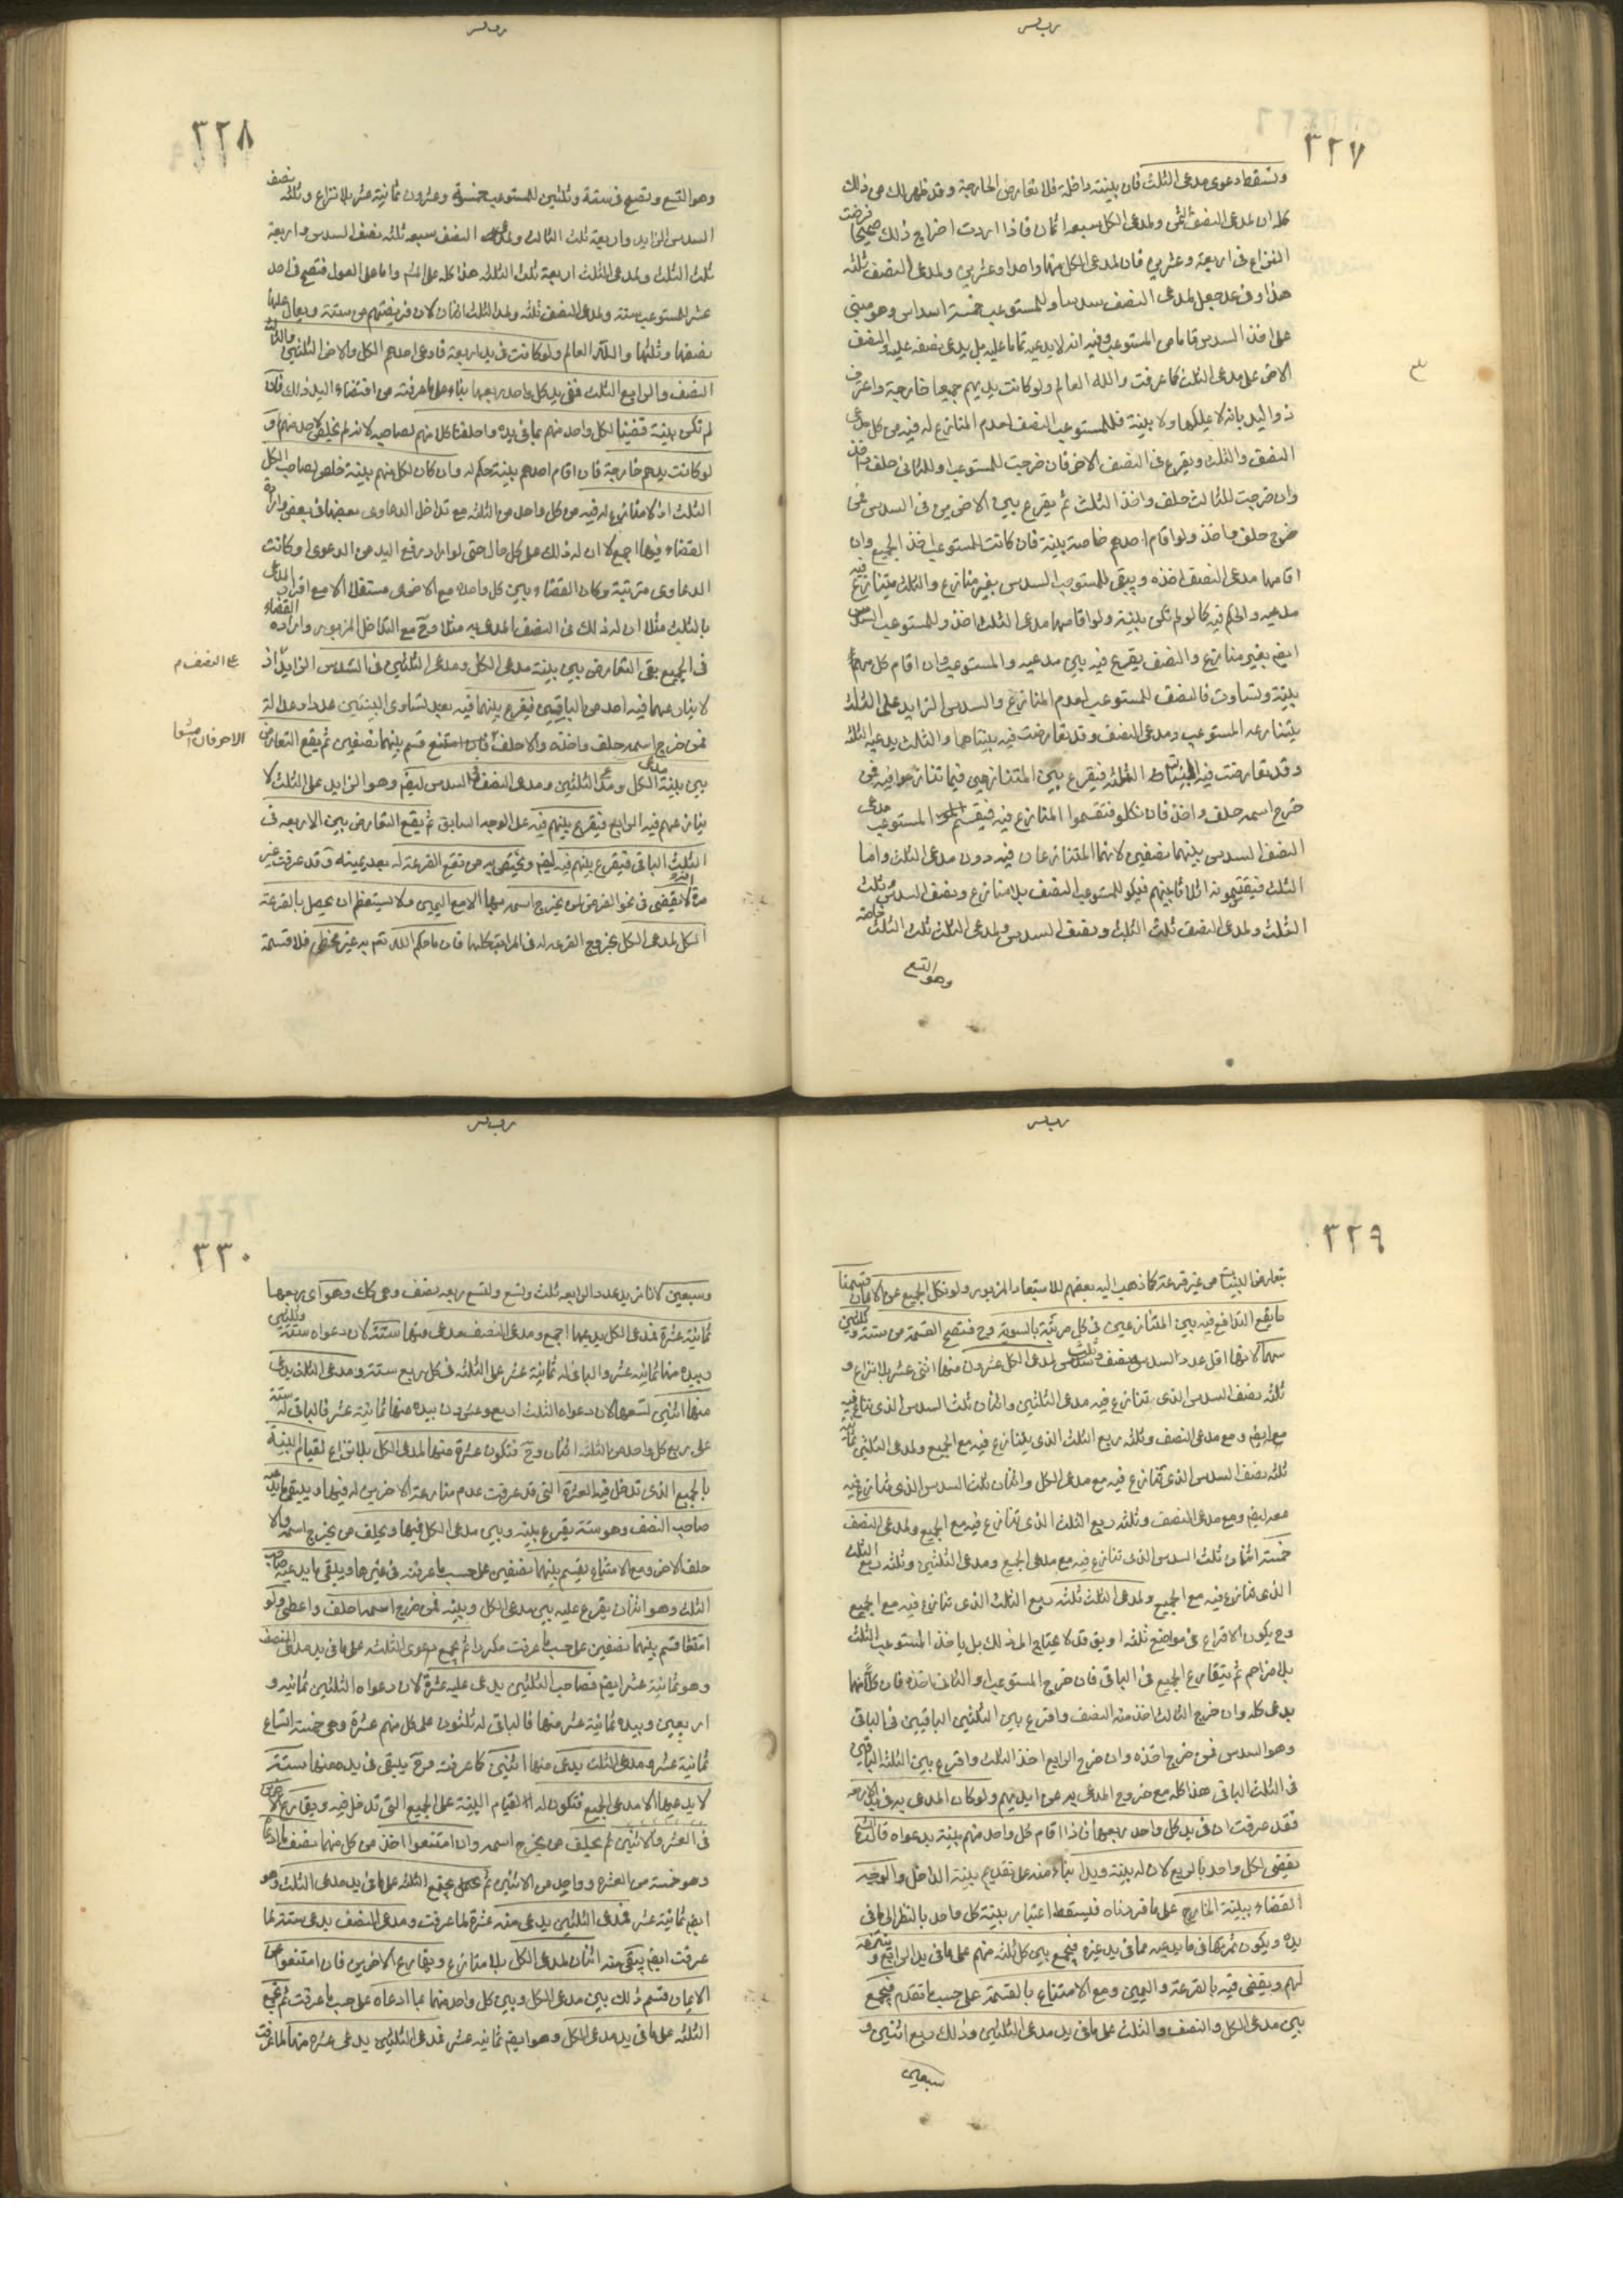 ٣٢٧
وتسقط دعوى مدعى الثلث فان بينته داخلة فلا تعارض الخارجة وقد ظهر لك من ذلك
كله ان لمدعى النصف الثمن ولمدعى الكل سبعة اثمان فاذا اردت اخراج ذلك صحيحا فرضت
النزاع فى اربعة وعشرين فان لمدعى الكل منها واحدا وعشرين ولمدعى النصف ثلثه
هذا وفى عد جعل لمدعى النصف سدسا وللمستوعب خمسة اسداس وهو مبنى
على اخذ السدس تماما من المستوعب وفيه انه لا يدعيه تماما عليه بل يدعى نصفه عليه والنصف
الاخر على مدعى الثلث كما عرفت والله العالم ولو كانت يديهم جميعا خارجة واعترف
ذو اليد بانه لا يملكها ولا بينة فللمستوعب النصف لعدم المنازع له فيه من كل مدعى
النصف والثلث ويقرع فى النصف الاخر فان خرجت للمستوعب او للثانى حلف واخذ
وان خرجت للثالث حلف واخذ الثلث ثم يقرع بين الاخرين فى السدس فمن
خرج حلف واخذ ولو اقام احدهم خاصة بينة فان كانت للمستوعب اخذ الجميع وان
اقامها مدعى النصف اخذه ويبقى للمستوعب السدس بغير منازع والثلث يتنازع فيه
مدعيه والحكم فيه كما لو لم تكن بينة ولو اقامها مدعى الثلث اخذه وللمستوعب السدس
ايض بغير منازع والنصف يقرع فيه بين مدعيه والمستوعب وان اقام كل منهم
بينة وتساوت فالنصف للمستوعب لعدم المنازع والسدس الزايد على الثلث
يتنازعه المستوعب ومدعى النصف وقد تعارضت فيه بينتاهما والثالث يدعيه الثلثه
وقد تعارضت فيه البينات الثلثه فيقرع بين المتنازعين فيما تنازعوا فيه فمن
خرج اسمه حلف واخذ فان نكلوا فتقسموا المتنازع فيه فيقسم المستوعب مدعى
النصف السدس بينهما نصفين لانهما المتنازعان فيه دون مدعى الثلث واما
الثلث فيقتسمونه اثلاثا بينهم فيكون للمستوعب النصف بلا منازع ونصف السدس وثلث
الثلث ولمدعى النصف ثلث الثلث ونصف السدس ولمدعى الثلث ثلث الثلث خاصة
وهو التسع
٣٢٨
وهو التسع وتصح فى ستة وثلثين للمستوعب خمسة وعشرون ثمانية عشر بلا نزاع وثلثه نصف
السدس الزايد واربعة ثلث الثالث ولمدعى النصف سبعه ثلثه نصف السدس واربعة
ثلث الثلث ولمدعى الثلث اربعة ثلث الثلثه هذا كله على المشهور واما على العول فتصح فى احد
عشر للمستوعب ستة ولمدعى النصف ثلثه ولمدعى الثلث اثنان لان فريضتهم من ستة ويعال عليها
نصفها وثلثها والله العالم ولو كانت فى يد اربعة فادعى احدهم الكل والاخر الثلثين والثالث
النصف والرابع الثلث ففى يد كل واحد ربعها بناء على ما عرفته من اقتضاء اليد ذلك فان
لم تكن بينة قضينا لكل واحد منهم بما فى يده واحلفنا كلا منهم لصاحبه
لو كانت يدهم خارجة فان اقام احدهم بينة حكم له وان كان لكل منهم بينة خلص لصاحب الكل
الثلث اذ لا منازع له فيه من كل واحد من الثلثه مع تداخل الدعاوى بعضها فى بعض وارادة
القضاء فيها اجمع لا ان له ذلك على كل حال حتى لو اراد رفع اليد من الدعوى او كانت
الدعاوى مترتبة وكان القضاء بين كل واحد مع الاخرى مستقلا الا مع اقرار المدعى
بالثلث مثلا ان له ذلك فى النصف المدعى به مثلا وح مع التداخل المزبور وارادة القضاء
فى الجميع بقى التعارض بين بينة مدعى الكل ومدعى الثلثين فى السدس الزايد اذ
على النصف م
لا ينازعهما فيه احد من الباقين فيقرع بينهما فيه بعد تساوى البينتين عددا وعدالة
فمن خرج اسمه حلف واخذه والا حلف الاخر فان امتنعا قسم بينهما نصفين ثم يقع التعارض
بين بينة مدعى الكل ومدعى الثلثين ومدعى النصف فى السدس ايضا وهو الزايد على الثلث لا
ينازعهم فيه الرابع فيقرع بينهم فيه على الوجه السابق ثم يقع التعارض بين الاربعه فى
الثلث الباقى فيقرع بينهم فيه ايض ويختص به من تقع القرعة له بعد يمينه وقد عرفت غير
مرة انه لا يقضى فى نحو الفرض لمن يخرج اسمه بها الا مع اليمين ولا يستعظم ان يحصل بالقرعة
الكل لمدعى الكل بخروج القرعه له فى المراتب كلها فان ما حكم الله تع به غير مخطى فلا قسمة
٣٢٩
بتعارض البينات من غير قرعة كما ذهب اليه بعضهم للاستبعاد المزبور ولو نكل الجميع عن الايمان قسمنا
ما يقع التدافع فيه بين المتنازعين فى كل مرتبة بالسوية وح فتصح القسمة من ستة وثلثين
سهما لانها اقل عدد السدس ونصف وثلث لمدعى الكل عشرون منها اثنى عشر بلا نزاع و
ثلثه نصف السدس الذى تنازع فيه مدعى الثلثين واثنان ثلث السدس الذى تنازع فيه
مع ايض ومع مدعى النصف وثلثه ربع الثلث الذى يتنازع فيه مع الجميع ولمدعى الثلثين ثمانية
ثلثه نصف السدس الذى تنازع فيه مع مدعى الكل واثنان ثلث السدس الذى تنازع فيه
معه ايض ومع مدعى النصف وثلثه ربع الثلث الذى تنازع فيه مع الجميع ولمدعى النصف
خمسة اثنان ثلث السدس الذى تنازع فيه مع مدعى الجميع ومدعى الثلثين وثلثه ربع الثلث
الذى تنازع فيه مع الجميع ولمدعى الثلث ثلثه ربع الثلث الذى تنازع فيه مع الجميع
وح يكون الاقراع فى مواضع ثلثه او يق قد لا يحتاج الى ذلك بل ياخذ المستوعب الثلث
بلا مزاحم ثم يتقارع الجميع فى الباقى فان خرج المستوعب او الثانى اخذه فان كلا منهما
يدعى كله وان خرج الثالث اخذ منه النصف واقرع بين الثلثين الباقيين فى الباقى
وهو السدس فمن خرج اخذه وان خرج الرابع اخذ الثلث واقرع بين الثلثه الباقين
فى الثلث الباقى هذا كله مع خروج المدعى به عن ايديهم ولو كان المدعى به فى يد الاربعه
فقد عرفت ان فى يد كل واحد ربعها فاذا اقام كل واحد منهم بينة بدعواه
يقضى لكل واحد بالربع لان له بينة ويدا بناء منه على تقديم بينة الداخل والوجه
القضاء ببينة الخارج على ما قررناه فيسقط اعتبار بينة كل واحد بالنظر الى ما فى
يده ويكون ثمرتها فى ما يدعيه مما فى يد غيره فيجمع بين كل ثلثه منهم على ما فى يد الرابع
لهم ويقضى فيه بالقرعة واليمين ومع الامتناع بالقسمة على حسب ما تقدم فيجمع
بين مدعى الكل والنصف والثلث على ما فى يد مدعى الثلثين وذلك ربع اثنين و
سبعين
٣٣٠
وسبعين لانا نريد عددا لربعه ثلث وتسع ولتسع ربعه نصف وهى كك وهو اى ربعها
ثمانية عشرة فمدعى الكل يدعيها اجمع ومدعى النصف يدعى منها ستة لان دعواه ستة وثلثين
وبيده منها ثمانية عشر والباقى له ثمانية عشر على الثلثه فى كل ربع ستة ومدعى الثلث يدعى
منها اثنين لتسعها لان دعواه الثلث اربع وعشرون بيده منها ثمانية عشر فالباقى له ستة
على ربع كل واحد من الثلثه اثنان وح فتكون عشرة منها لمدعى الكل بلا نزاع لقيام البينة
بالجميع الذى تدخل فيه العشرة التى قد عرفت عدم منازعة الاخرين له فيها ويبقى ما يدعيه
صاحب النصف وهو ستة يقرع بينه وبين مدعى الكل فيها ويحلف من يخرج اسمه والا
حلف الاخر ومع الامتناع يقسم بينهما نصفين على حسب ما عرفته فى غيرها ويبقى ما يدعيه صاحب
الثلث وهو اثنان يقرع عليه بين مدعى الكل وبينه فمن خرج اسمه احلف واعطى ولو
امتنعا قسم بينهما نصفين على حسب ما عرفت مكررا ثم يجمع دعوى الثلثه على ما فى يد مدعى النصف
وهو ثمانية عشر ايض فصاحب الثلثين يدعى عليه عشرة لان دعواه الثلثين ثمانيه و
اربعين وبيده ثمانية عشر منها فالباقى له ثلثون على كل منهم عشرة وهى خمسة اتساع
ثمانية عشر ومدعى الثلث يدعى منها اثنين كما عرفت وح يبقى فى يده منها ستة
لا يدعيها الا مدعى الجميع فتكون له لقيام البينة على الجميع التى تدخل فيه ويقارع الاخرين
فى العشر والاثنين ثم يحلف من يخرج اسمه وان امتنعوا اخذ من كل منهما نصف ما ادعاه
وهو خمسة من العشرة وواحد من الاثنين ثم يجتمع الثلثه على ما فى يد مدعى الثلث وهو
ايض ثمانية عشر فمدعى الثلثين يدعى منه عشرة لما عرفت ومدعى النصف يدعى ستة لما
عرفت ايض يبقى منه اثنان لمدعى الكل بلا منازع ويقارع الاخرين فان امتنعوا عن
الايمان قسم ذلك بين مدعى الكل وبين كل واحد منهما بما ادعاه على حسب ما عرفت ثم يجمع
الثلثه على ما فى يد مدعى الكل وهو ايض ثمانية عشر فمدعى الثلثين يدعى عشره منها لما عرفت